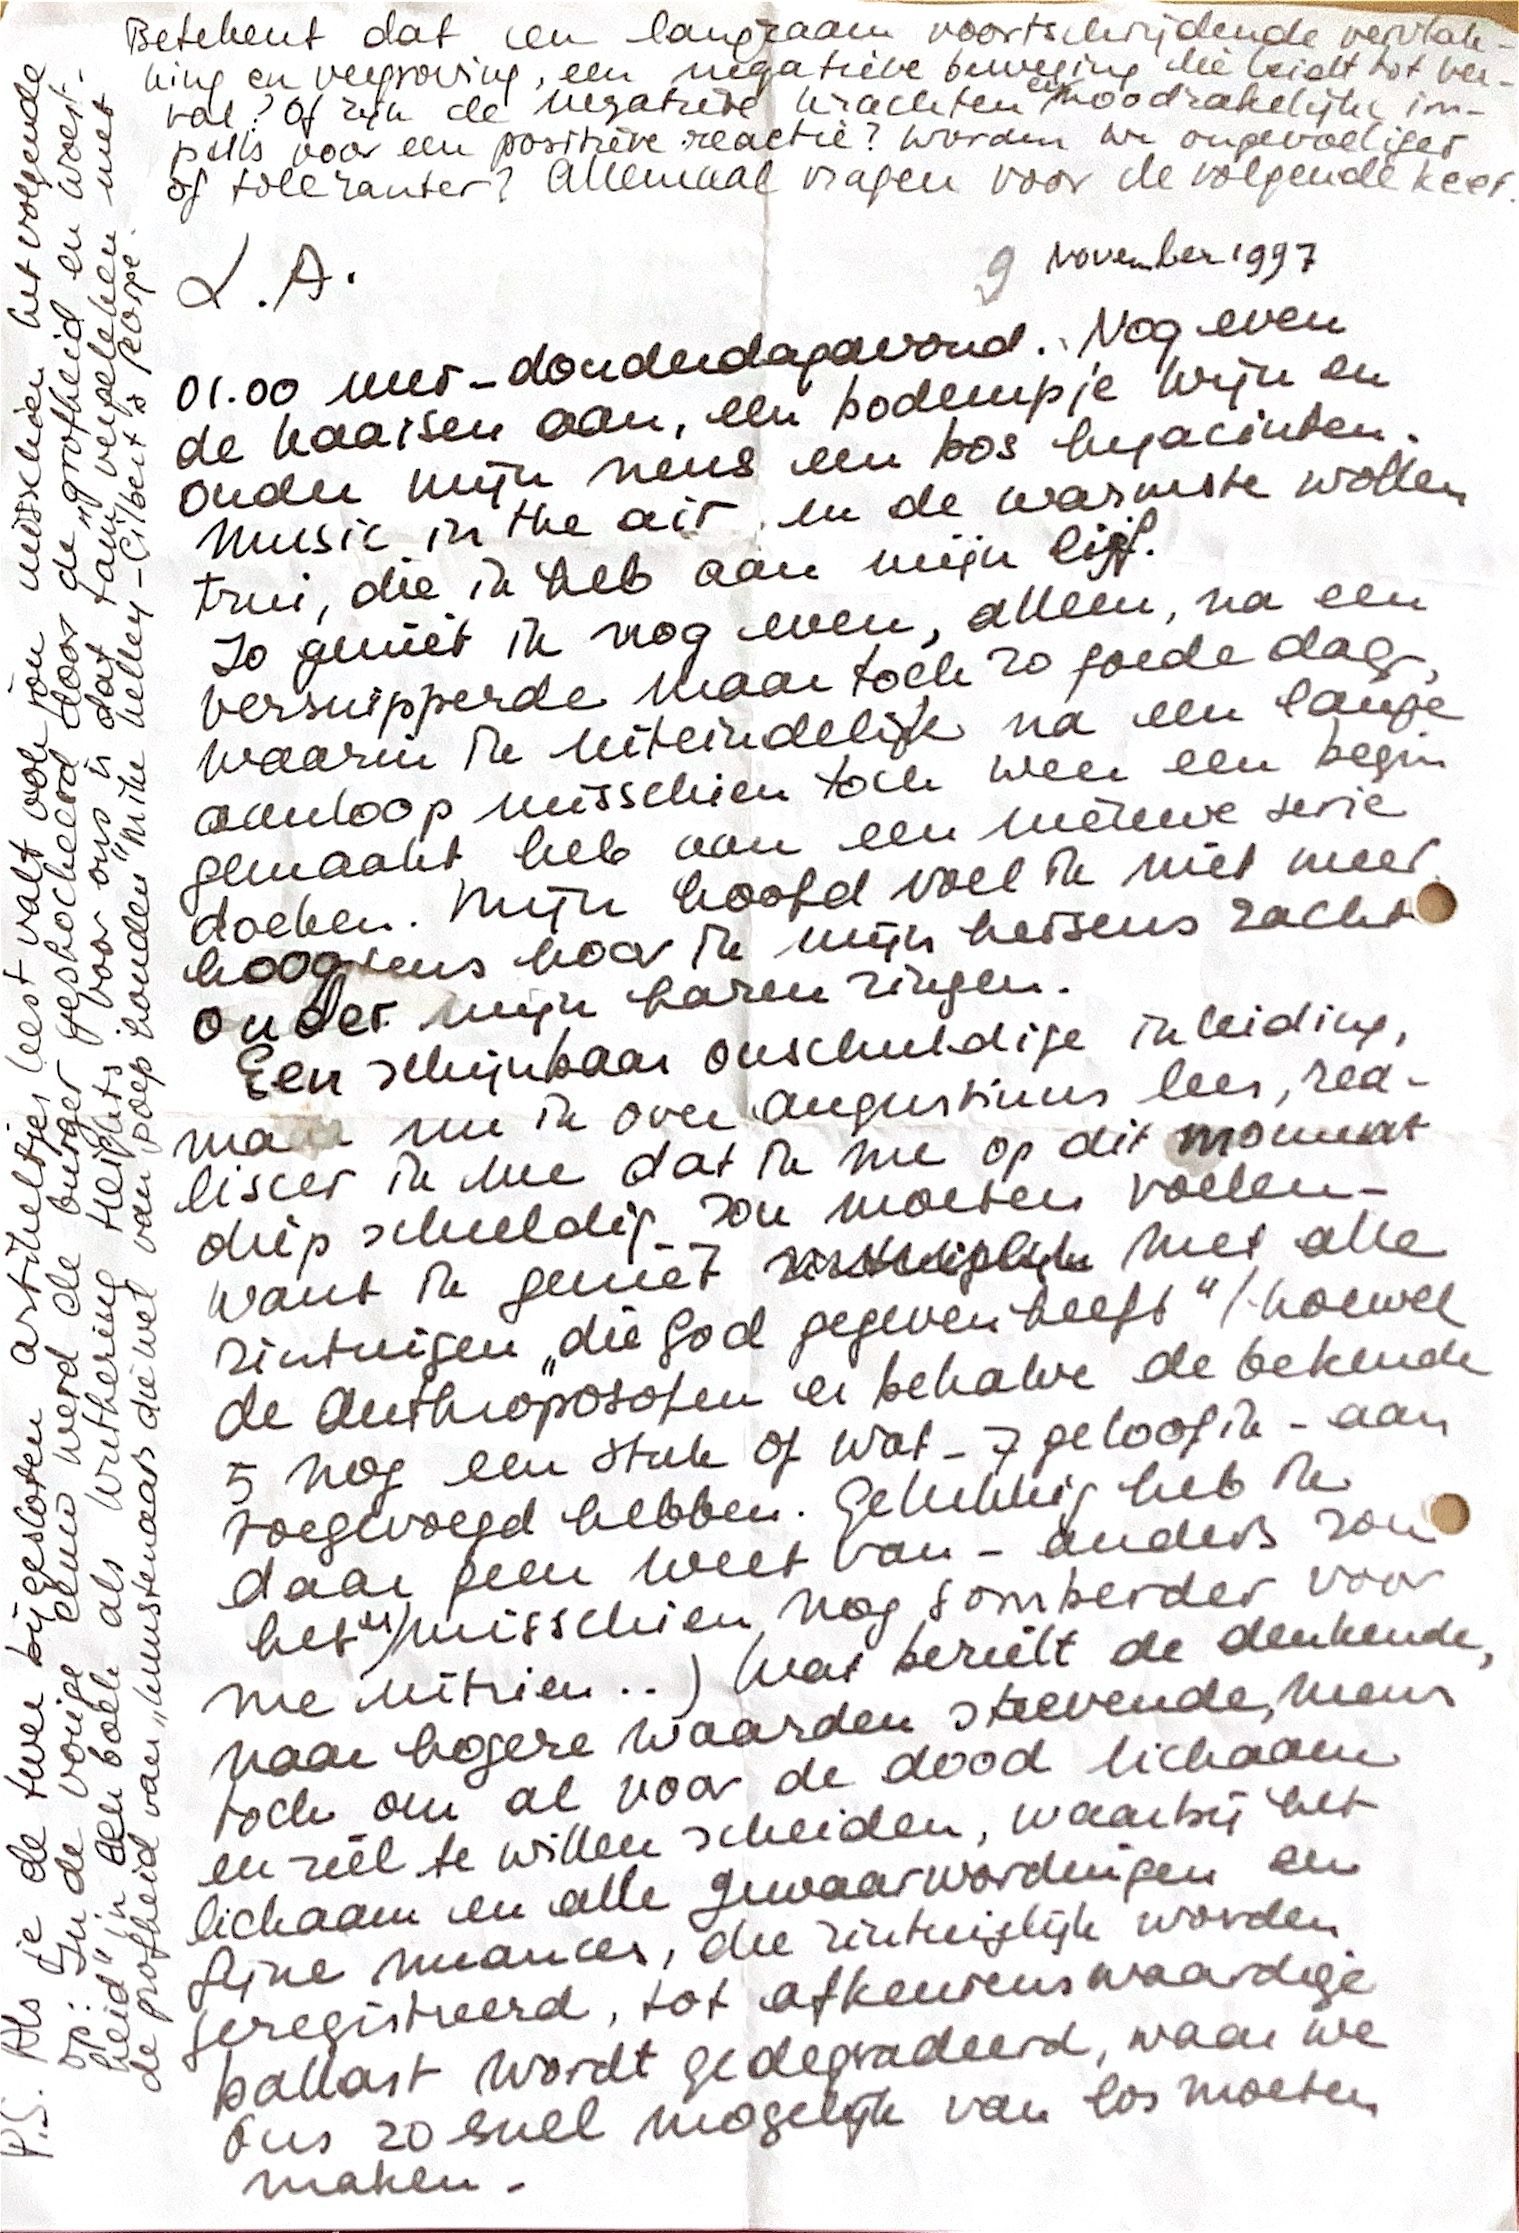 Betekent dat een langzaam voortschrijdende vervlak-
king en vergroving, een negatieve beweging die leidt tot ver-
val? Of zijn de negatieve krachten een noodzakelijke im-
puls voor een positieve reactie? Worden we ongevoeliger
of toleranter? Allemaal vragen voor de volgende keer.
L.A.
9 November 1997
01.00 uur - donderdagavond. Nog even
de kaarsen aan, een bodempje wijn en
onder mijn neus een bos hyacinten.
Music in the air en de warmste wollen
trui, die ik heb aan mijn lijf.
Zo geniet ik nog even, alleen, na een
versnipperde maar toch zo goede dag,
waarin ik uiteindelijk na een lange
aanloop misschien toch weer een begin
gemaakt heb aan een nieuwe serie
doeken. Mijn hoofd voel ik niet meer
hoogstens hoor ik mijn hersens zacht
onder mijn haren zingen.
Een schijnbaar onschuldige inleiding,
maar nu ik over Augustinus lees, rea-
liseer ik me dat ik me op dit moment
diep schuldig zou moeten voelen -
want ik geniet met alle
zintuigen „die God gegeven heeft" (hoewel
de Anthroposofen er behalve de bekende
5 nog een stuk of wat - 7 geloof ik - aan
toegevoegd hebben. Gelukkig heb ik
daar geen weet van - anders zou
het er misschien nog somberder voor
me uitzien..) Wat bezielt de denkende,
naar hogere waarden strevende, mens
toch om al voor de dood lichaam
en ziel te willen scheiden, waarbij het
lichaam en alle gewaarwordingen en
fijne nuances, die zintuiglijk worden
geregistreerd, tot afkeurenswaardige
ballast wordt gedegradeerd, waar we
ons zo snel mogelijk van los moeten
maken -
P.S. Als je de twee bijgesloten artikeltjes leest valt ook jou misschien het volgende
op: In de vorige eeuw werd de burger geshockeerd door de „grofheid en woest-
heid" in een boek als Wuthering Heights; voor ons is dat tam vergeleken met
de grofheid van „kunstenaars die wel van poep houden" Mike Kelley - Gilbert &